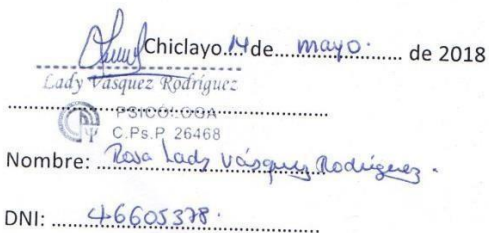 Chiclayo....14 de.... mayo........ de 2018
Lady Vásquez Rodríguez
PSICÓLOGA
C.Ps.P. 26468
Nombre: Rosa Lady Vásquez Rodríguez.
DNI: ....46605378.